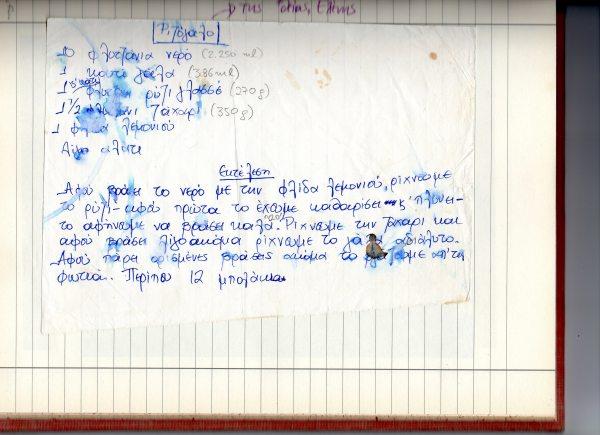 της Γιαγιάς Ελένης
Ρυζόγαλο
10 φλυτζάνια νερό (2.250 ml)
1 κουτί γάλα (386 ml)
1 φλυτζ. ρύζι γλασσέ (270 g)
1 1/2 ζάχαρι (350 g)
1 φλούδα λεμονιού
Λίγο αλάτι
Εκτέλεση
Αφού βράσει το νερό με την φλίδα λεμονιού, ρίχνωμε
το ρύζι - αφού πρώτα το έχωμε καθαρίσει κ' πλύνει -
το αφήνωμε να βράσει καλά. Ρίχνωμε την ζάχαρι και
αφού βράσει λίγο ακόμα ρίχνωμε το γάλα αδιάλυτο.
Αφού πάρει ορισμένες βράσεις ακόμα το απ' τη
φωτιά. Περίπου 12 μπολάκια